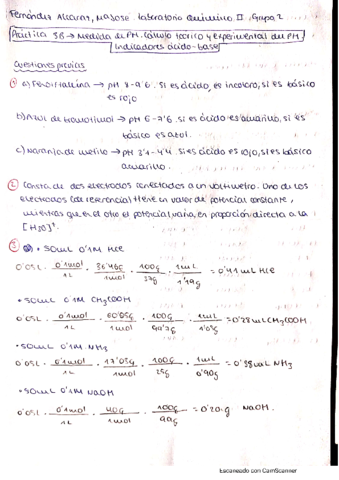 Fernández Alcaraz, MaJosé Laboratorio Químico II, Grupo 2
Práctica 3B → Medida de PH. Cálculo teórico y experimental del PH.
Indicadores ácido-base
Cuestiones previas
① a) Fenolftaleína → pH 8-9'6. Si es ácido, es incoloro, si es básico
es rojo
b) Azul de bromotimol → pH 6-7'6, si es ácido es amarillo, si es
básico es azul.
c) Naranja de metilo → pH 3'1-4'4. si es ácido es rojo, si es básico
amarillo.
② Consta de dos electrodos conectados a un voltímetro. Uno de los
electrodos (de referencia) tiene un valor de potencial constante,
mientras que en el otro el potencial varía, en proporción directa a la
[H3O]⁺.
③ • 50mL 0'1M HCl
0'05L · 0'1mol/1L · 36'46g/1mol · 100g/37g · 1mL/1'19g = 0'41 mL HCl
• 50mL 0'1M CH3COOH
0'05L · 0'1mol/1L · 60'05g/1mol · 100g · 1mL = 0'28mL CH3COOH
• 50mL 0'1M NH3
0'05L · 0'1mol/1L · 17'03g/1mol · 100g/25g · 1mL/0'90g = 0'38mL NH3
• 50mL 0'1M NaOH
0'05L · 0'1mol/1L · 40g/1mol · 100g/99g = 0'20g NaOH.
Escaneado con CamScanner